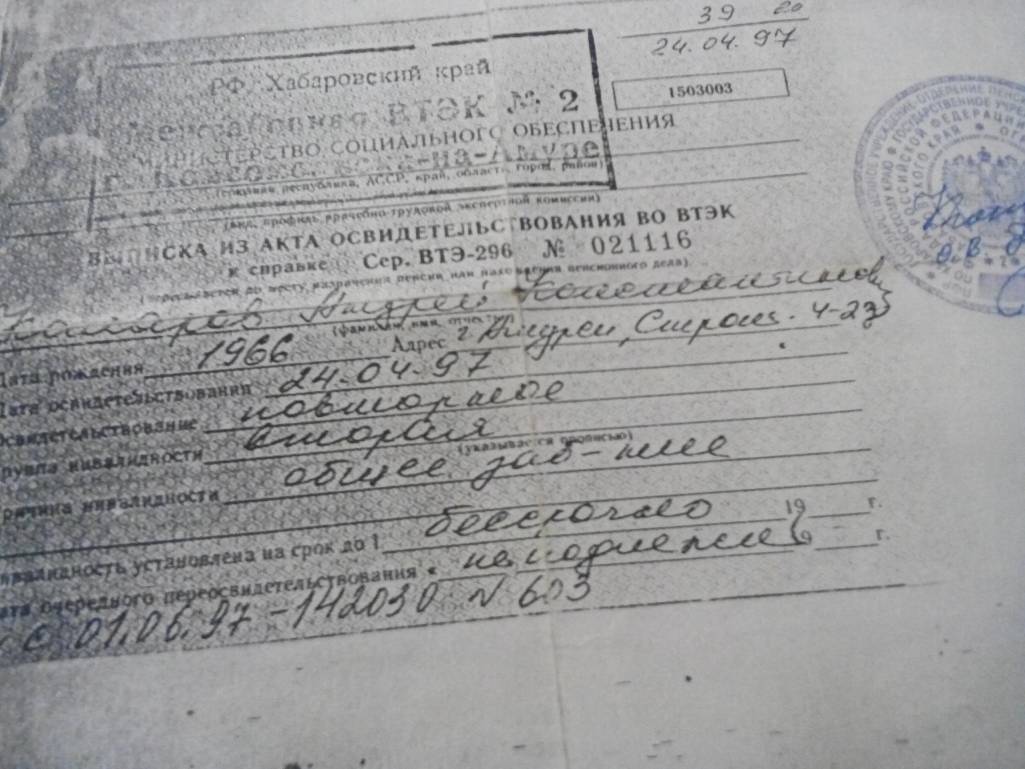 39 20
24.04.97
РФ Хабаровский край
Межрайонная ВТЭК № 2
1503003
МИНИСТЕРСТВО СОЦИАЛЬНОГО ОБЕСПЕЧЕНИЯ
на-Амуре
(союзная республика, АССР, край, область, город, район)
(вид, профиль врачебно-трудовой экспертной комиссии)
ВЫПИСКА ИЗ АКТА ОСВИДЕТЕЛЬСТВОВАНИЯ ВО ВТЭК
к справке Сер. ВТЭ-296 № 021116
(пересылается по месту назначения пенсии или нахождения пенсионного дела)
Андрей Константинович
(фамилия, имя, отчество)
Дата рождения 1966 Адрес г. Амурск, Строит. 4-23
Дата освидетельствования 24.04.97
Освидетельствование повторное
Группа инвалидности вторая
(указывается прописью)
Причина инвалидности общее заб-ние
Инвалидность установлена на срок до 1 бессрочно 19 г.
Дата очередного переосвидетельствования « не подлежит г.
с 01.06.97 - 142030 N 603